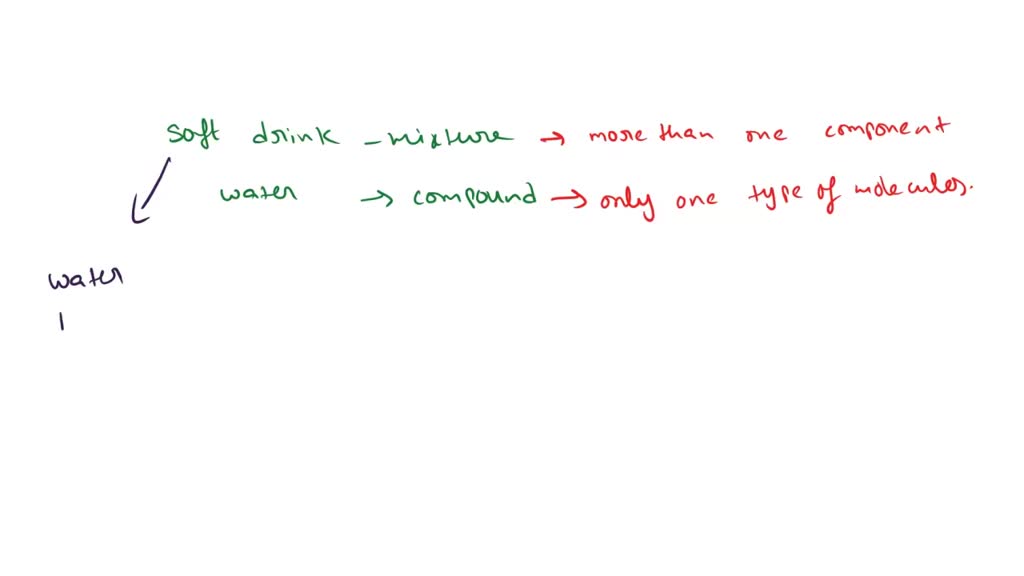 soft drink - mixture → more than one component
water → compound → only one type of molecules.
water